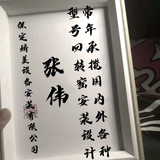 常年承揽国内外各种
型号回转窑安装设计
张伟
保定精美设备安装有限公司